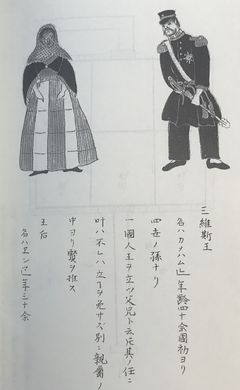 三維斯王
名ハカメハム 年齢四十余国初ヨリ
四世ノ孫ナリ
一國人王ヲ立ツ父兄ト云𪜈其ノ任ニ
叶ハ不レハ立ヲ免サズ別ニ親属ノ
中ヨリ賢ヲ推ス
王后
名ハエン 年三十余